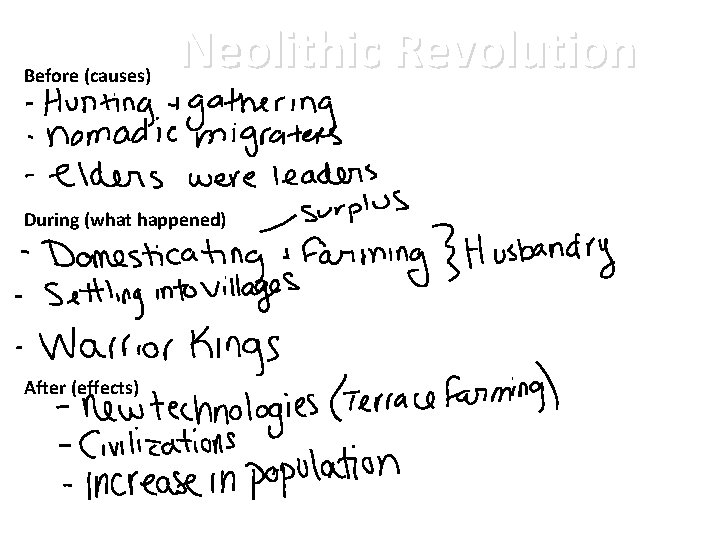 Neolithic Revolution
Before (causes)
- Hunting + gathering
- nomadic migraters
- elders were leaders
During (what happened)
surplus
- Domesticating + farming } Husbandry
- Settling into villages
- Warrior Kings
After (effects)
- New technologies (Terrace farming)
- Civilizations
- increase in population